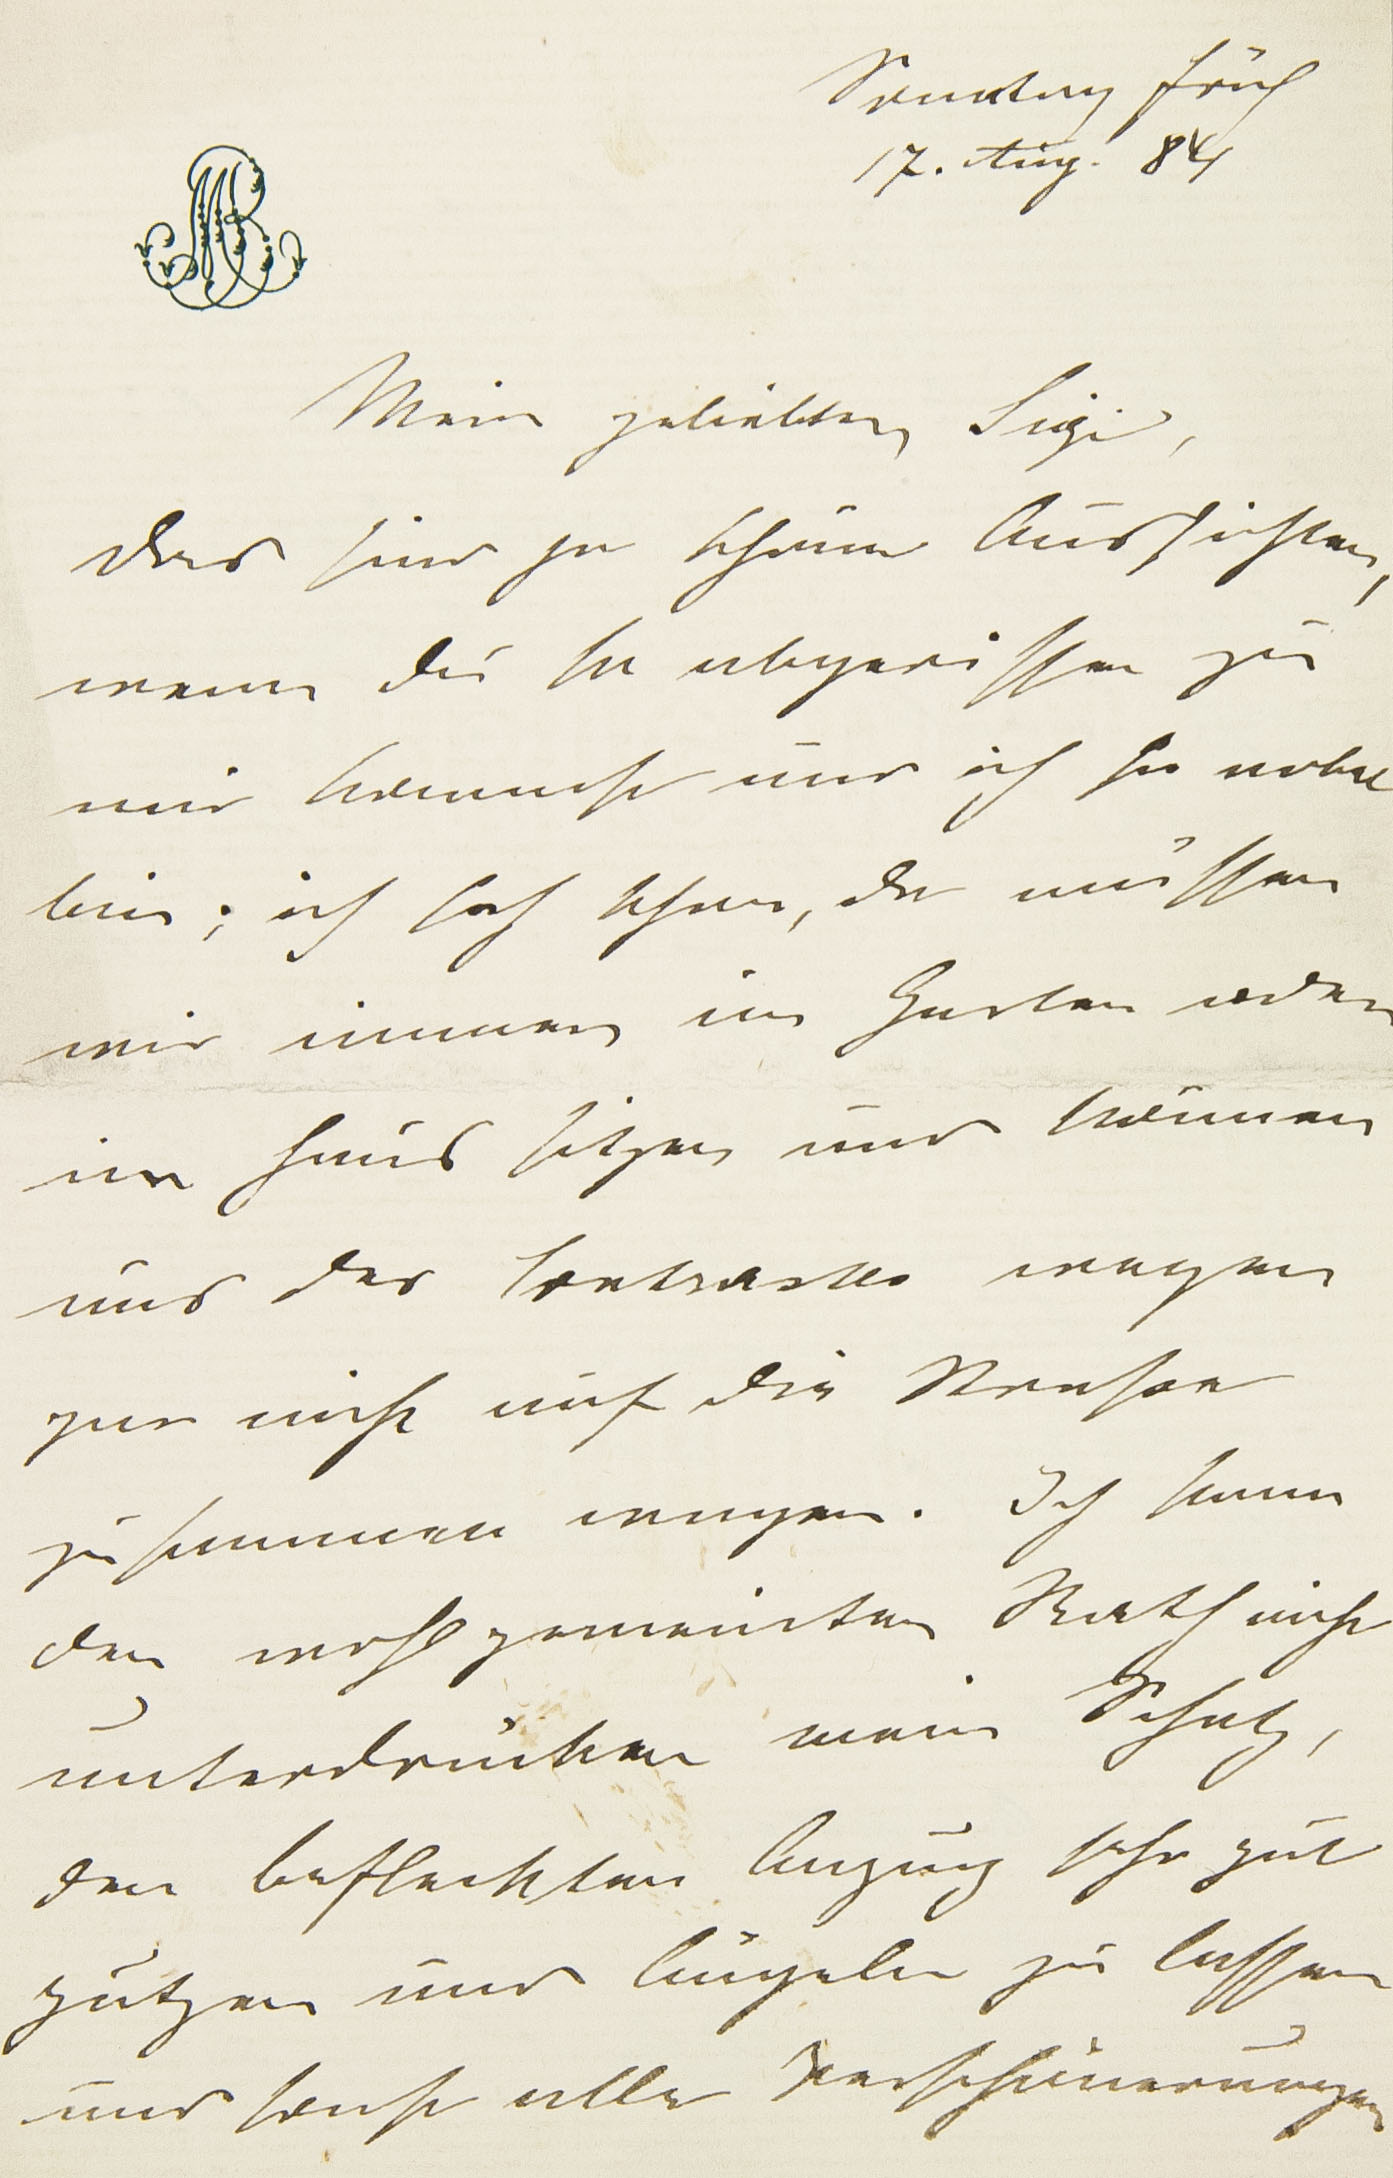 Sonntag früh
17. Aug. 84
MB
Mein geliebter Sigi,
das sind ja schöne Aussichten,
wenn Du so abgerissen zu
mir kommst und ich so nobel
bin; ich seh schon, da müssen
wir immer im Garten oder
im Haus sitzen und können
uns des Contrastes wegen
gar nicht auf die Straße
zusammen wagen. Ich kann
den wohlgemeinten Rath nicht
unterdrücken mein Schatz,
den befleckten Anzug sehr gut
putzen und bügeln zu lassen
und sonst alle Verschönerungen